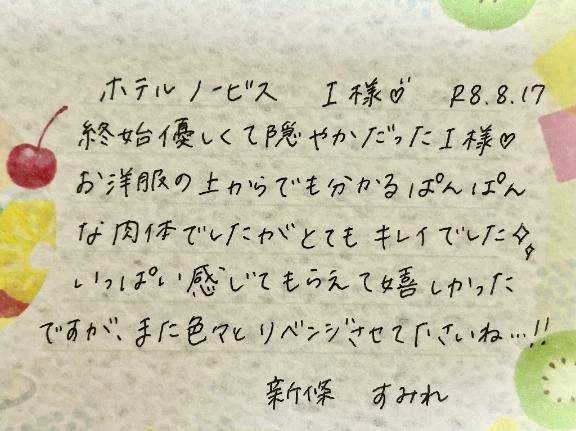 ホテルノービス I様♡ R8.8.17
終始優しくて隠やかだったI様♡
お洋服の上からでも分かるぱんぱん
な肉体でしたがとてもキレイでした✧
いっぱい感じてもらえて嬉しかった
ですが、また色々とリベンジさせて下さいね…!!
新條 すみれ